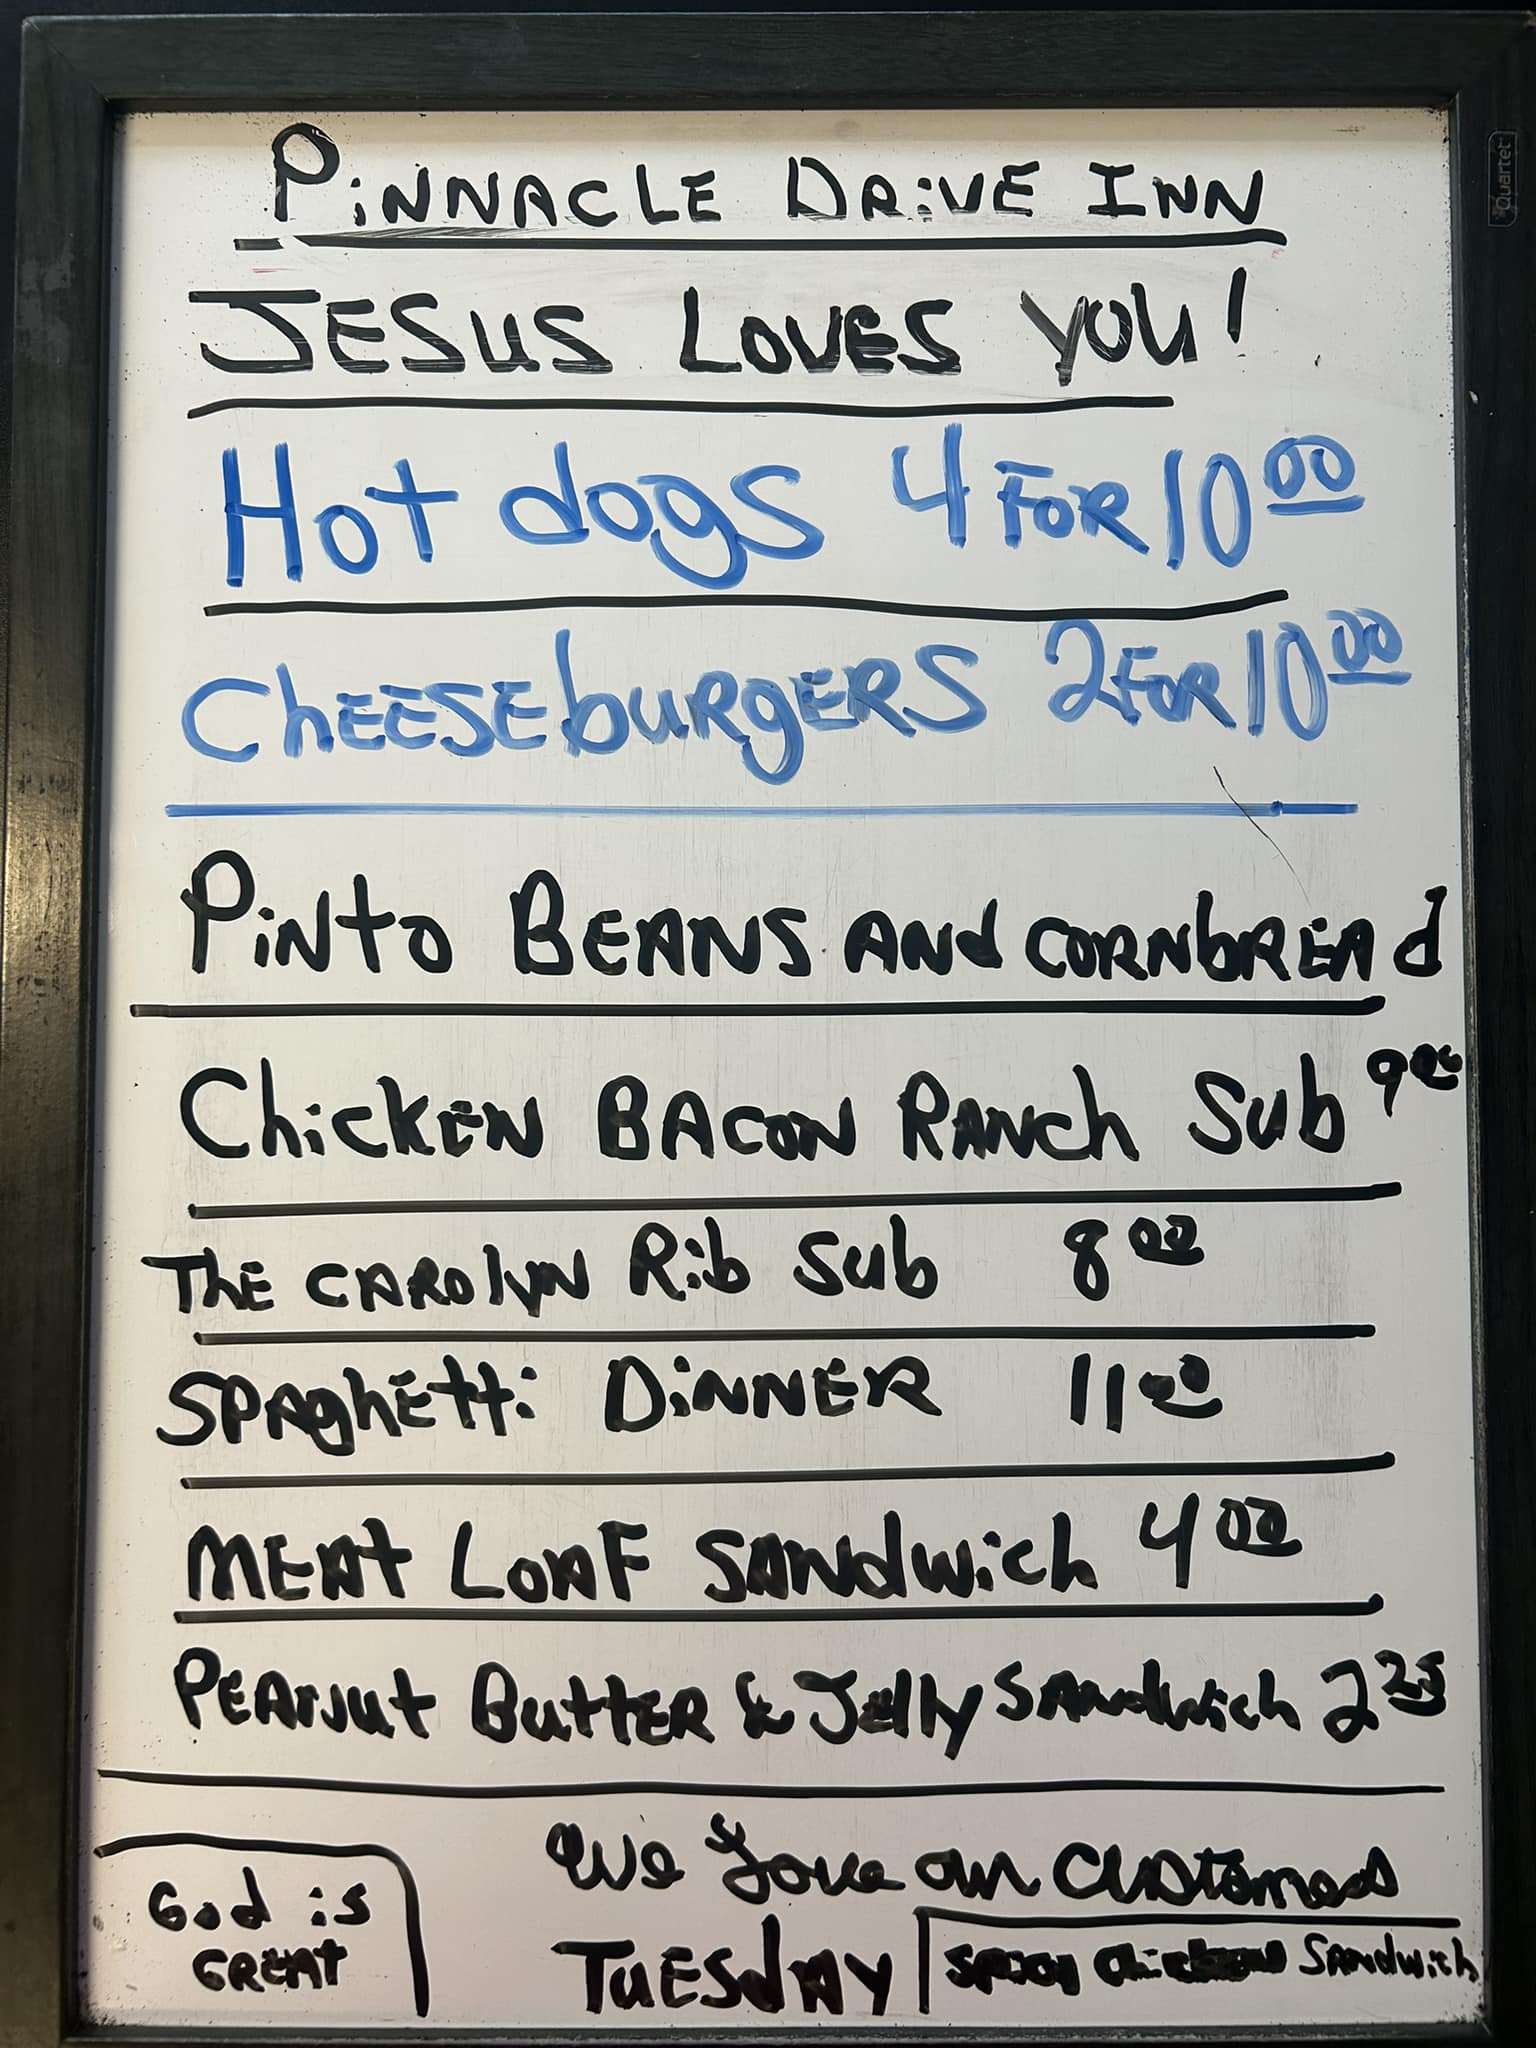 Quartet
PiNNACLE DRiVE INN
JESUS LOVES YOU!
Hot dogs 4 FOR 10 00
ChEESEburgERS 2 FOR 10 00
PiNto BEANS ANd CORNbREAd
ChickEN BACON RANCh Sub 9 00
THE CAROlyN Rib Sub 8 00
SPAghEtti DiNNER 11 00
MEAt LOAF SANdwich 4 00
PEANut ButtER & JElly SANdwich 2 25
We Love our Customers
God is
GREAt
TUESdAY
Chicken SANdwich